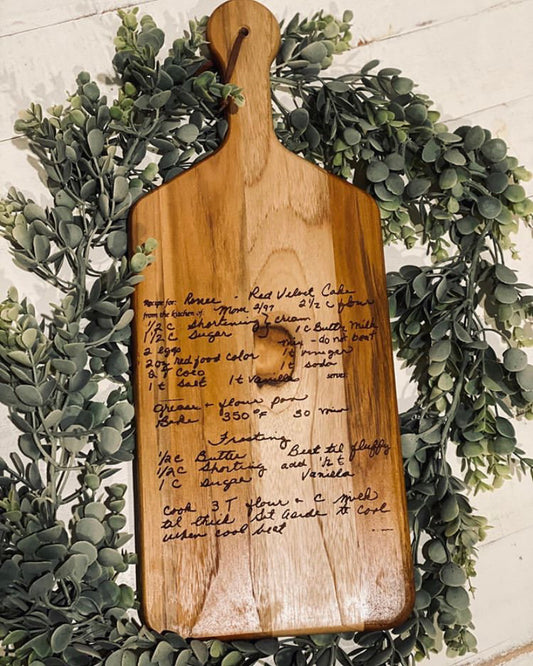 Recipe for: Renee - Red Velvet Cake
from the kitchen of Mom 2/97 2 1/2 c flour
1/2 c Shortening } cream 1 c Butter Milk
1 1/2 c Sugar mix - do not beat
2 eggs 1 t vinegar
2 oz red food color 1 t soda
8 T Coco
1 t salt 1 t vanilla SERVES:
Grease + flour pan
Bake 350 °F 30 min
Frosting
1/2 c Butter Beat til fluffy
1/2 c Shorting add 1/2 t
1 c Sugar Vanilla
Cook 3 T flour + c milk
til thick Set aside to cool
when cool beat